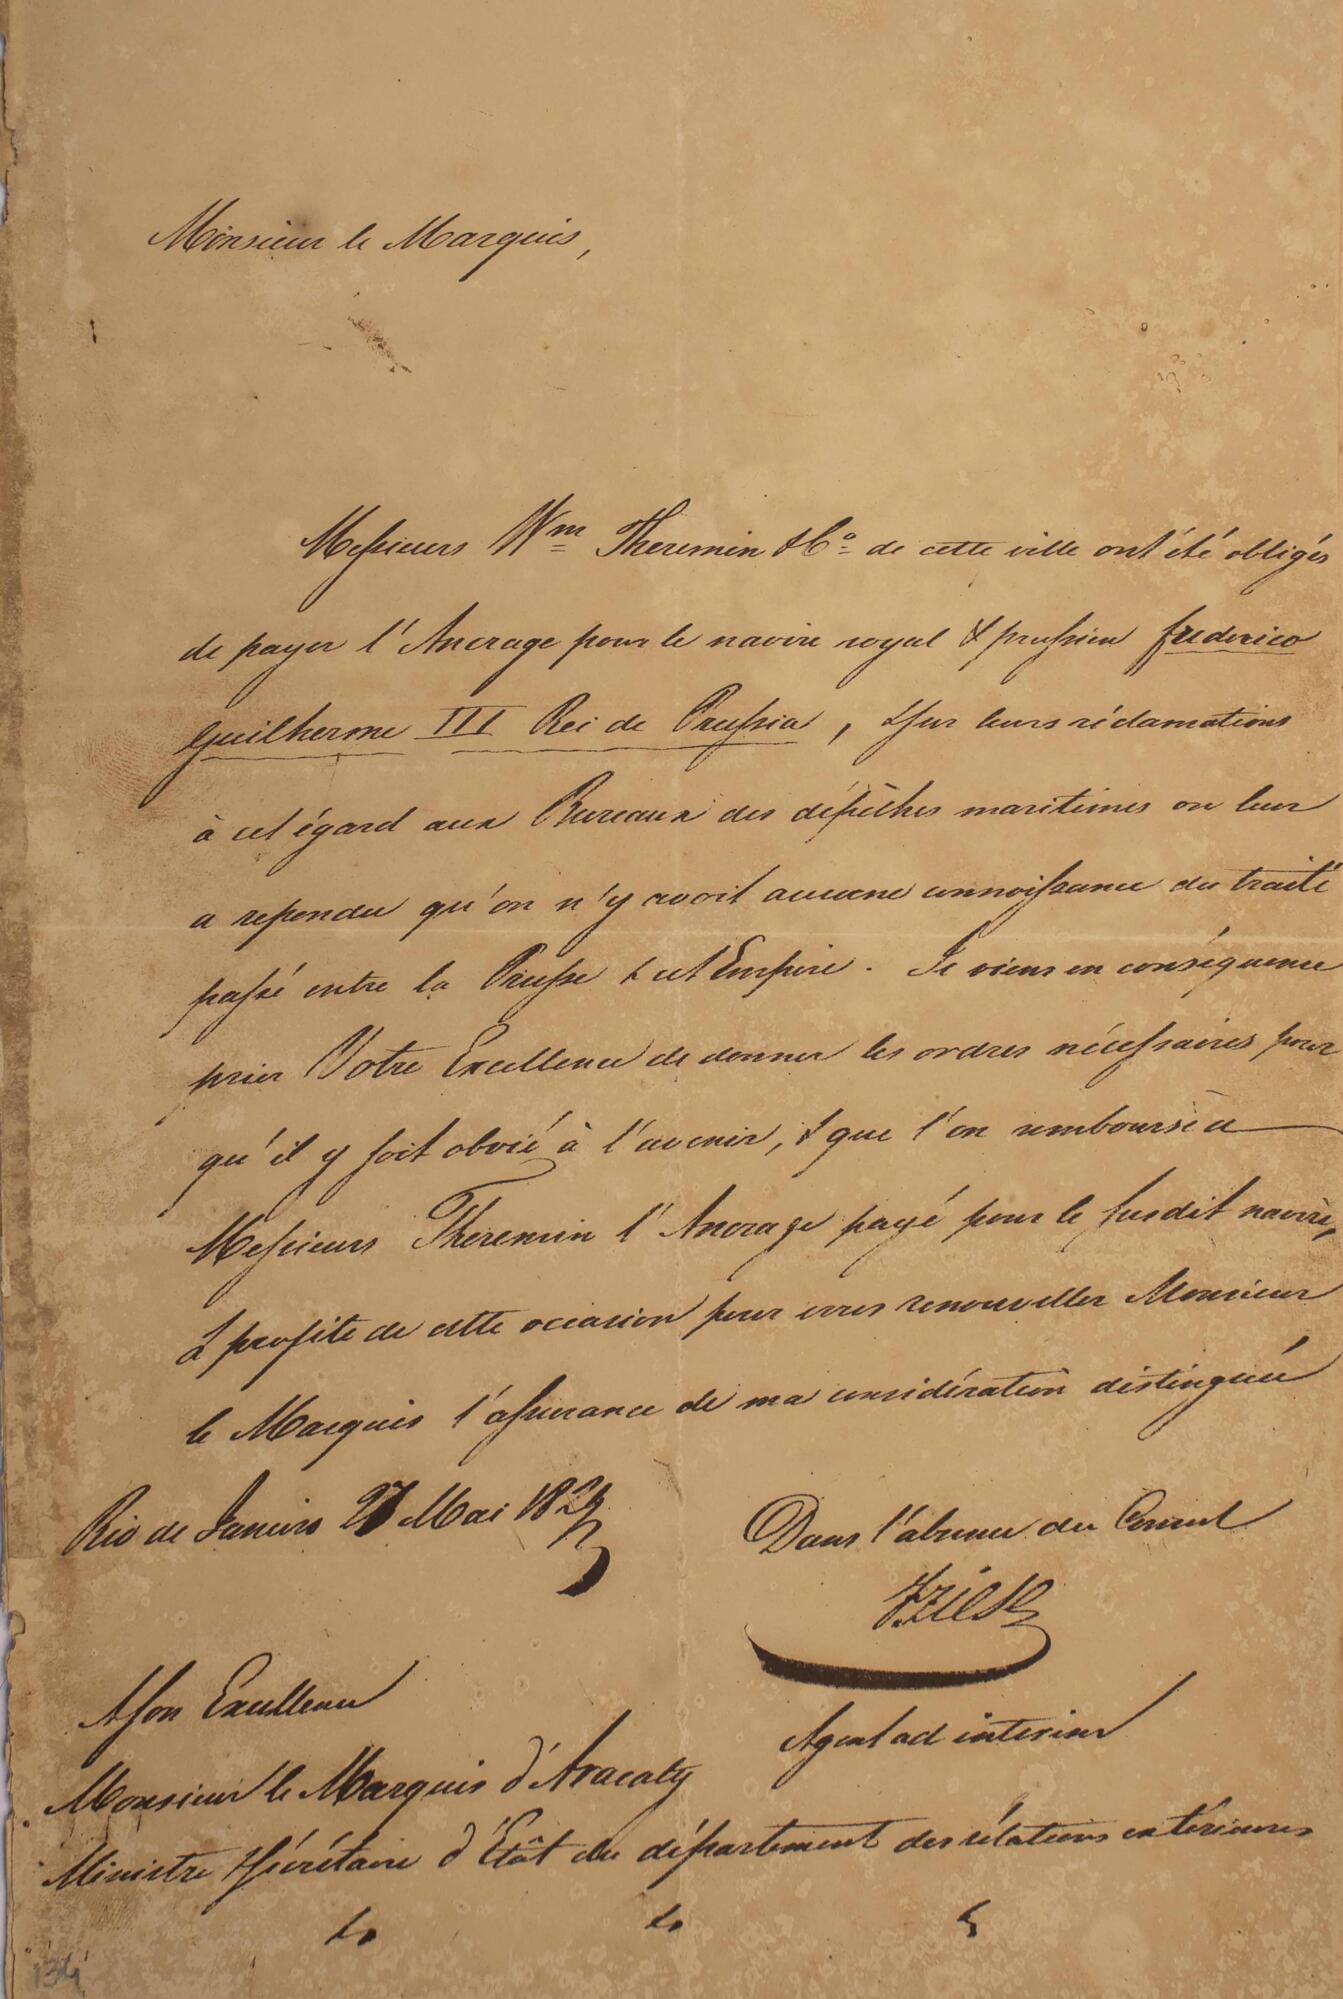 Monsieur le Marquis,
Messieurs Wm Theremin & Co de cette ville ont été obligés
de payer l'Ancrage pour le navire royal & prussien Frederico
Guilherme III Rei de Prussia, & sur leurs réclamations
à cet égard aux Bureaux des dépêches maritimes on leur
a repondu qu'on n'y avoit aucune connoissance du traité
passé entre la Prusse & cet Empire. Je viens en conséquence
prier Votre Excellence de donner les ordres nécessaires pour
qu'il y soit obvié à l'avenir, & que l'on rembourse à
Messieurs Theremin l'Ancrage payé pour le susdit navire,
& profite de cette occasion pour vous renouveller Monsieur
le Marquis l'assurance de ma considération distinguée
Rio de Janeiro 27 Mai 182
Dans l'absence du Consul
Agent ad interim
A Son Excellence
Monsieur le Marquis d'Aracaty
Ministre & Sécrétaire d'État du département des rélations extérieures
&c &c &c
134